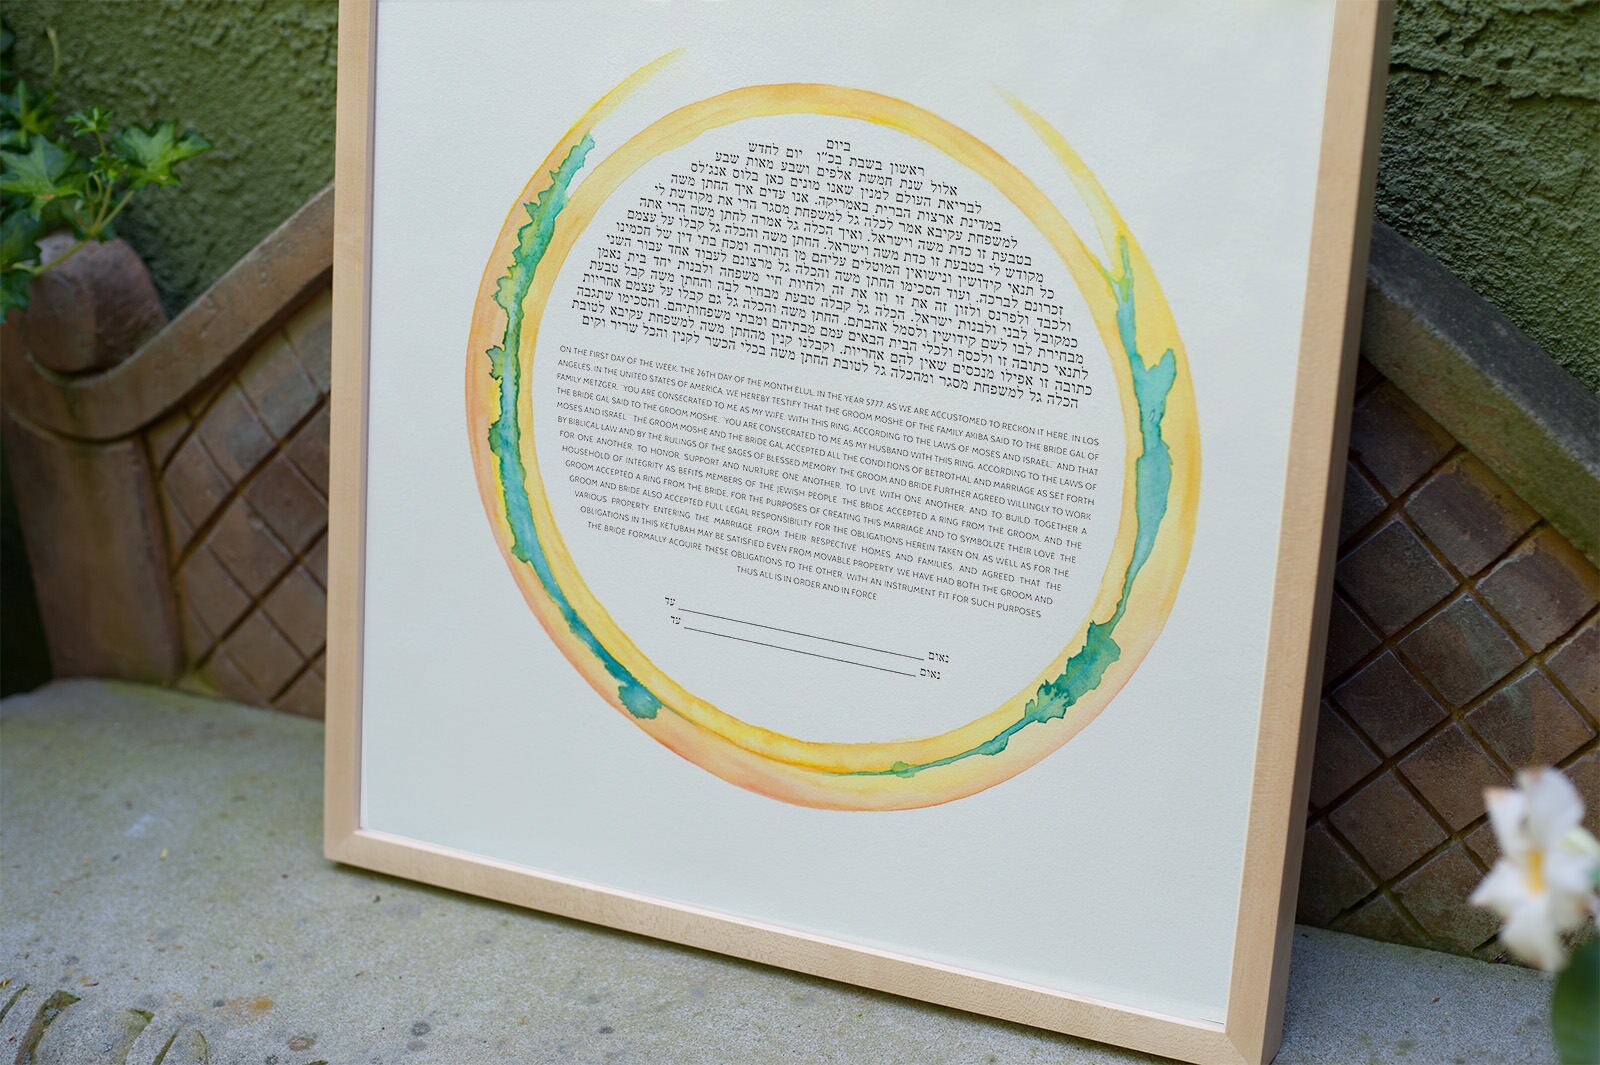 ביום
ראשון בשבת בכ״ו יום לחדש
אלול שנת חמשת אלפים ושבע מאות שבע
לבריאת העולם למנין שאנו מונים כאן בלוס אנג׳לס
במדינת ארצות הברית באמריקה. אנו עדים איך החתן משה
למשפחת עקיבא אמר לכלה גל למשפחת מסגר הרי את מקודשת לי
בטבעת זו כדת משה וישראל. ואיך הכלה גל אמרה לחתן משה הרי אתה
מקודש לי בטבעת זו כדת משה וישראל. החתן משה והכלה גל קבלו על עצמם
כל תנאי קידושין ונישואין המוטלים עליהם מן התורה ומכח בתי דין של חכמינו
זכרונם לברכה. ועוד הסכימו החתן משה והכלה גל מרצונם לעבוד אחד עבור השני
ולכבד ולפרנס ולזון זה את זו וזו את זה ולחיות חיי משפחה ולבנות יחד בית נאמן
כמקובל לבני ולבנות ישראל. הכלה גל קבלה טבעת מבחיר לבה והחתן משה קבל טבעת
מבחירת לבו לשם קידושין ולסמל אהבתם. החתן משה והכלה גל גם קבלו על עצמם אחריות
לתנאי כתובה זו ולכסף ולכלי הבית הבאים עמם מבתיהם ומבתי משפחותיהם. והסכימו שתגבה
כתובה זו אפילו מנכסים שאין להם אחריות. וקבלנו קנין מהחתן משה למשפחת עקיבא לטובת
הכלה גל למשפחת מסגר ומהכלה גל לטובת החתן משה בכלי הכשר לקנין והכל שריר וקים
ON THE FIRST DAY OF THE WEEK, THE 26TH DAY OF THE MONTH ELUL, IN THE YEAR 5777, AS WE ARE ACCUSTOMED TO RECKON IT HERE, IN LOS
ANGELES, IN THE UNITED STATES OF AMERICA, WE HEREBY TESTIFY THAT THE GROOM MOSHE OF THE FAMILY AKIBA SAID TO THE BRIDE GAL OF
FAMILY METZGER, "YOU ARE CONSECRATED TO ME AS MY WIFE, WITH THIS RING, ACCORDING TO THE LAWS OF MOSES AND ISRAEL," AND THAT
THE BRIDE GAL SAID TO THE GROOM MOSHE, "YOU ARE CONSECRATED TO ME AS MY HUSBAND WITH THIS RING, ACCORDING TO THE LAWS OF
MOSES AND ISRAEL." THE GROOM MOSHE AND THE BRIDE GAL ACCEPTED ALL THE CONDITIONS OF BETROTHAL AND MARRIAGE AS SET FORTH
BY BIBLICAL LAW AND BY THE RULINGS OF THE SAGES OF BLESSED MEMORY. THE GROOM AND BRIDE FURTHER AGREED WILLINGLY TO WORK
FOR ONE ANOTHER, TO HONOR, SUPPORT AND NURTURE ONE ANOTHER, TO LIVE WITH ONE ANOTHER, AND TO BUILD TOGETHER A
HOUSEHOLD OF INTEGRITY AS BEFITS MEMBERS OF THE JEWISH PEOPLE. THE BRIDE ACCEPTED A RING FROM THE GROOM, AND THE
GROOM ACCEPTED A RING FROM THE BRIDE, FOR THE PURPOSES OF CREATING THIS MARRIAGE AND TO SYMBOLIZE THEIR LOVE. THE
GROOM AND BRIDE ALSO ACCEPTED FULL LEGAL RESPONSIBILITY FOR THE OBLIGATIONS HEREIN TAKEN ON, AS WELL AS FOR THE
VARIOUS PROPERTY ENTERING THE MARRIAGE FROM THEIR RESPECTIVE HOMES AND FAMILIES, AND AGREED THAT THE
OBLIGATIONS IN THIS KETUBAH MAY BE SATISFIED EVEN FROM MOVABLE PROPERTY. WE HAVE HAD BOTH THE GROOM AND
THE BRIDE FORMALLY ACQUIRE THESE OBLIGATIONS TO THE OTHER, WITH AN INSTRUMENT FIT FOR SUCH PURPOSES.
THUS ALL IS IN ORDER AND IN FORCE
נאום עד
נאום עד